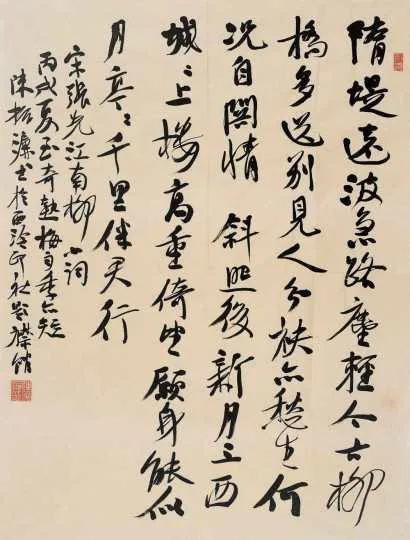 隋堤遠波急路塵輕今古柳
橋多送别見人分袂亦愁生何
況自闗情 斜照後新月上西
城〻上樓高重倚望願身能似
月亭〻千里伴君行
宋張先江南柳小詞
丙戌夏至奇熱梅雨季亦短
陳振濂書於西泠印社